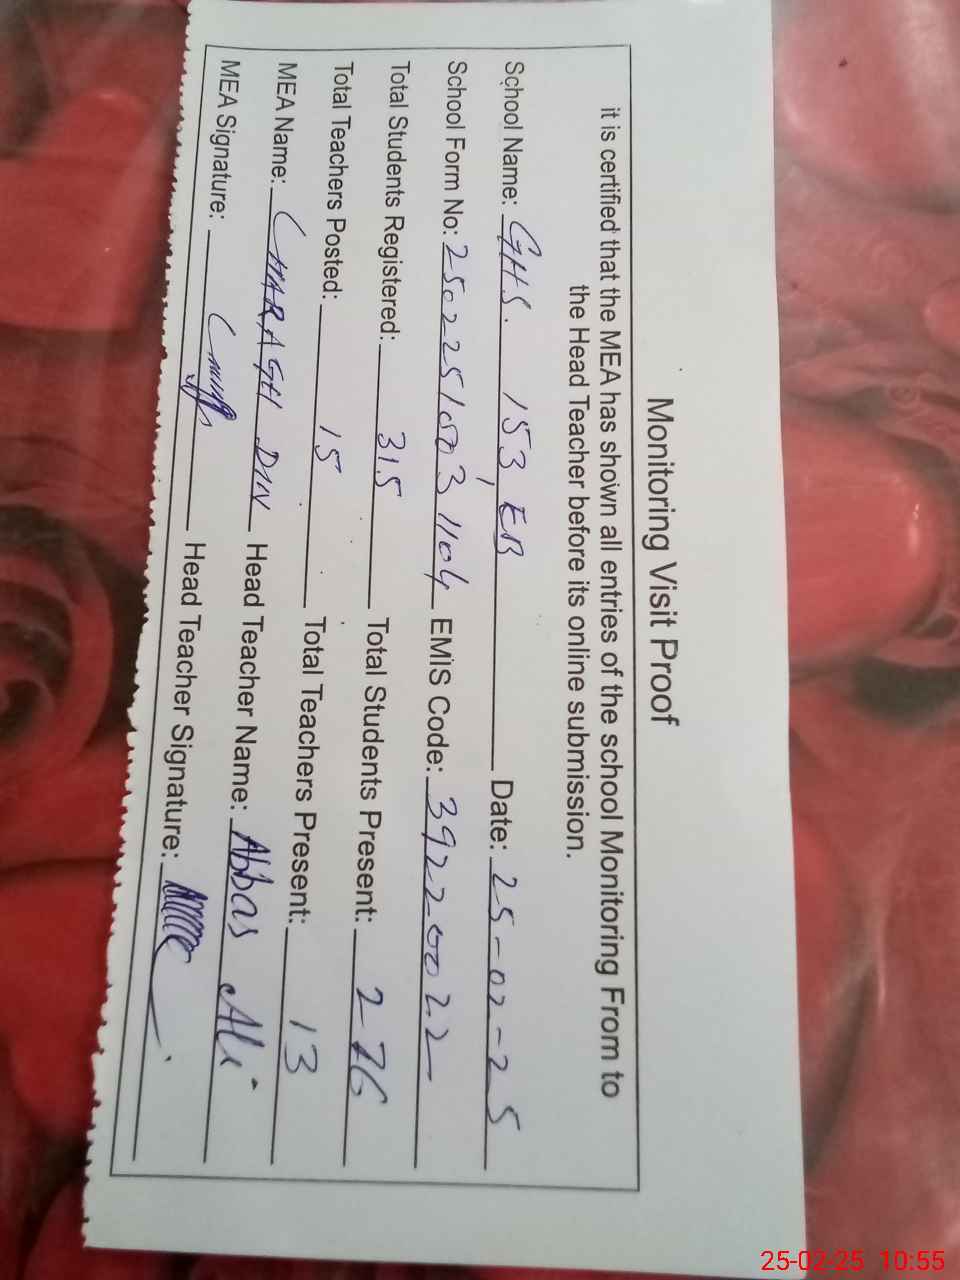 Monitoring Visit Proof
it is certified that the MEA has shown all entries of the school Monitoring From to
the Head Teacher before its online submission.
School Name: GHS. 153, EB Date: 25-02-25
School Form No: 250225105031104 EMIS Code: 39220022
Total Students Registered: 315 Total Students Present: 276
Total Teachers Posted: 15 Total Teachers Present: 13
MEA Name: CHARAGH DIN Head Teacher Name: Abbas Ali
MEA Signature: Head Teacher Signature:
25-02-25 10:55